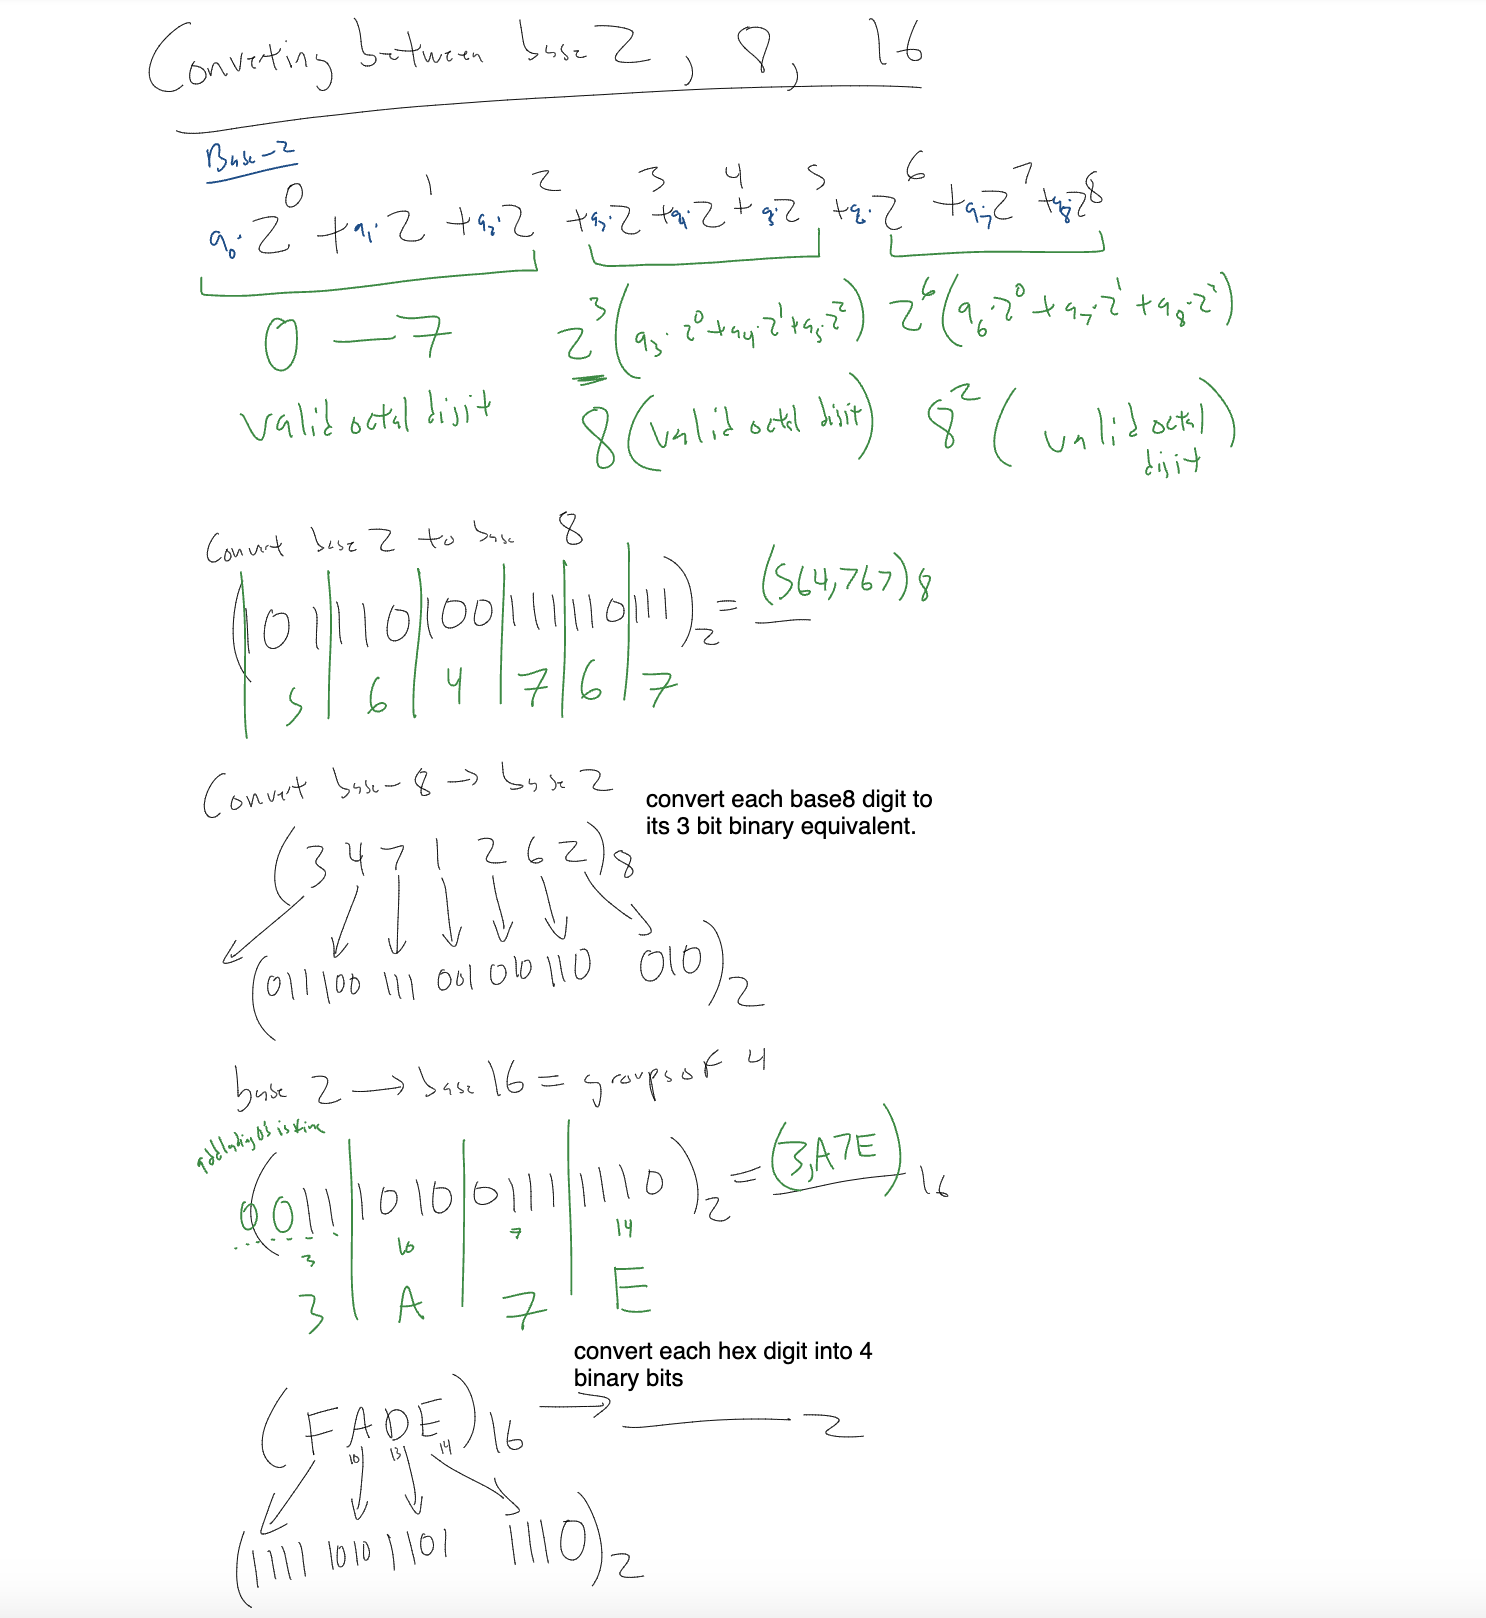 Converting between base 2, 8, 16
Base-2
a₀·2⁰ + a₁·2¹ + a₂·2² + a₃·2³ + a₄·2⁴ + a₅·2⁵ + a₆·2⁶ + a₇·2⁷ + a₈·2⁸
0 — 7 2³(a₃·2⁰ + a₄·2¹ + a₅·2²) 2⁶(a₆·2⁰ + a₇·2¹ + a₈·2²)
valid octal digit 8(valid octal digit) 8²(valid octal
digit)
Convert base 2 to base 8
(101|110|100|111|110|111)₂ = (564,767)₈
5 6 4 7 6 7
Convert base-8 → base 2
convert each base8 digit to
its 3 bit binary equivalent.
(3 4 7 1 2 6 2)₈
(011 100 111 001 010 110 010)₂
base 2 → base 16 = groups of 4
add leading 0's is fine
(0011|1010|0111|1110)₂ = (3,A7E)₁₆
3 10 7 14
3 A 7 E
convert each hex digit into 4
binary bits
(FADE)₁₆ → ____ 2
10 13 14
(1111 1010 1101 1110)₂